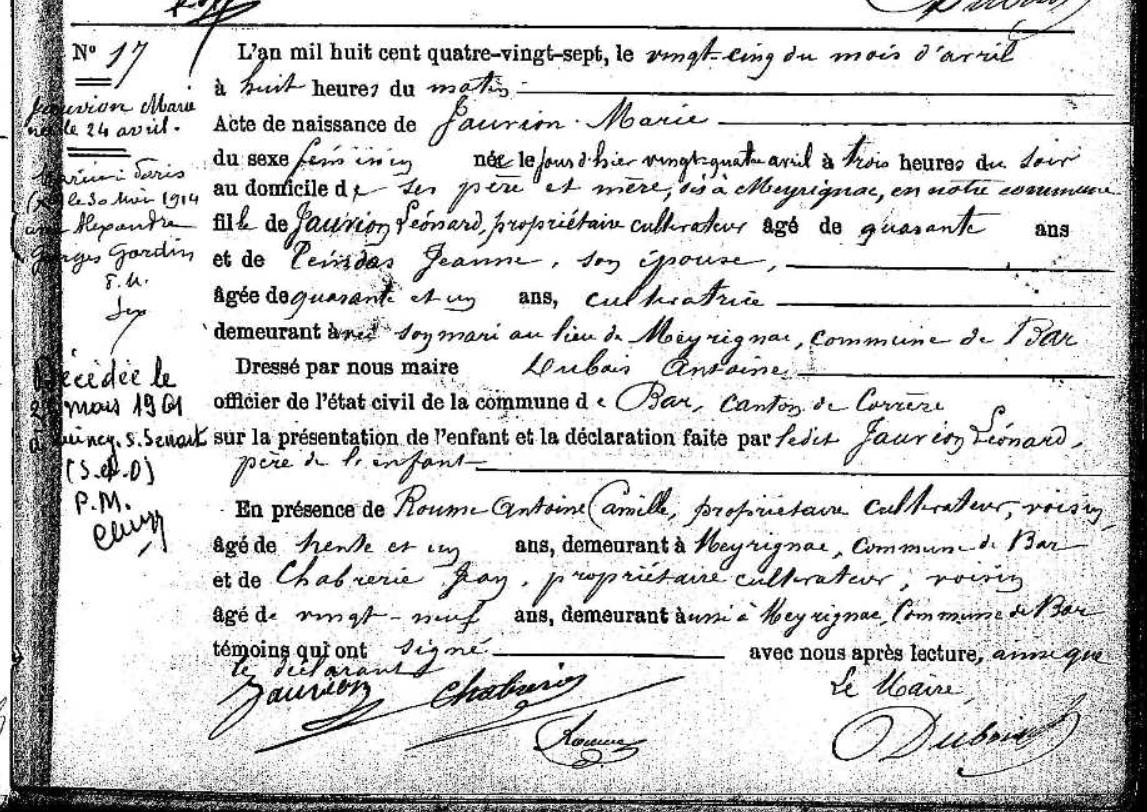 N° 17
Jauvion Marie
née le 24 avril.
Paris
le 30 Mai 1914
Alexandre
Georges Gardin
Décédée le
mars 1961
Quincy. s. Senart
(S.et.O)
P.M.
L'an mil huit cent quatre-vingt-sept, le vingt-cinq du mois d'avril
à huit heures du matin
Acte de naissance de Jauvion Marie
du sexe féminin née le jour d'hier vingt-quatre avril à trois heures du soir
au domicile de ses père et mère, sis à Meyrignac, en notre commune
fille de Jauvion Léonard, propriétaire cultivateur âgé de quarante ans
et de Jeanne, son épouse,
âgée de quarante et un ans, cultivatrice
demeurant avec son mari au lieu de Meyrignac, commune de Bar
Dressé par nous maire Dubois Antoine
officier de l'état civil de la commune de Bar, canton de Corrèze
sur la présentation de l'enfant et la déclaration faite par ledit Jauvion Léonard,
père de l'enfant
En présence de Roume Antoine Camille, propriétaire cultivateur, voisin,
âgé de trente et un ans, demeurant à Meyrignac, Commune de Bar
et de Chabrerie Jean, propriétaire cultivateur, voisin
âgé de vingt-neuf ans, demeurant aussi à Meyrignac, Commune de Bar
témoins qui ont signé avec nous après lecture, ainsi que
le déclarant
Le Maire,
Jauvion Chabrerie
Roume
Dubois